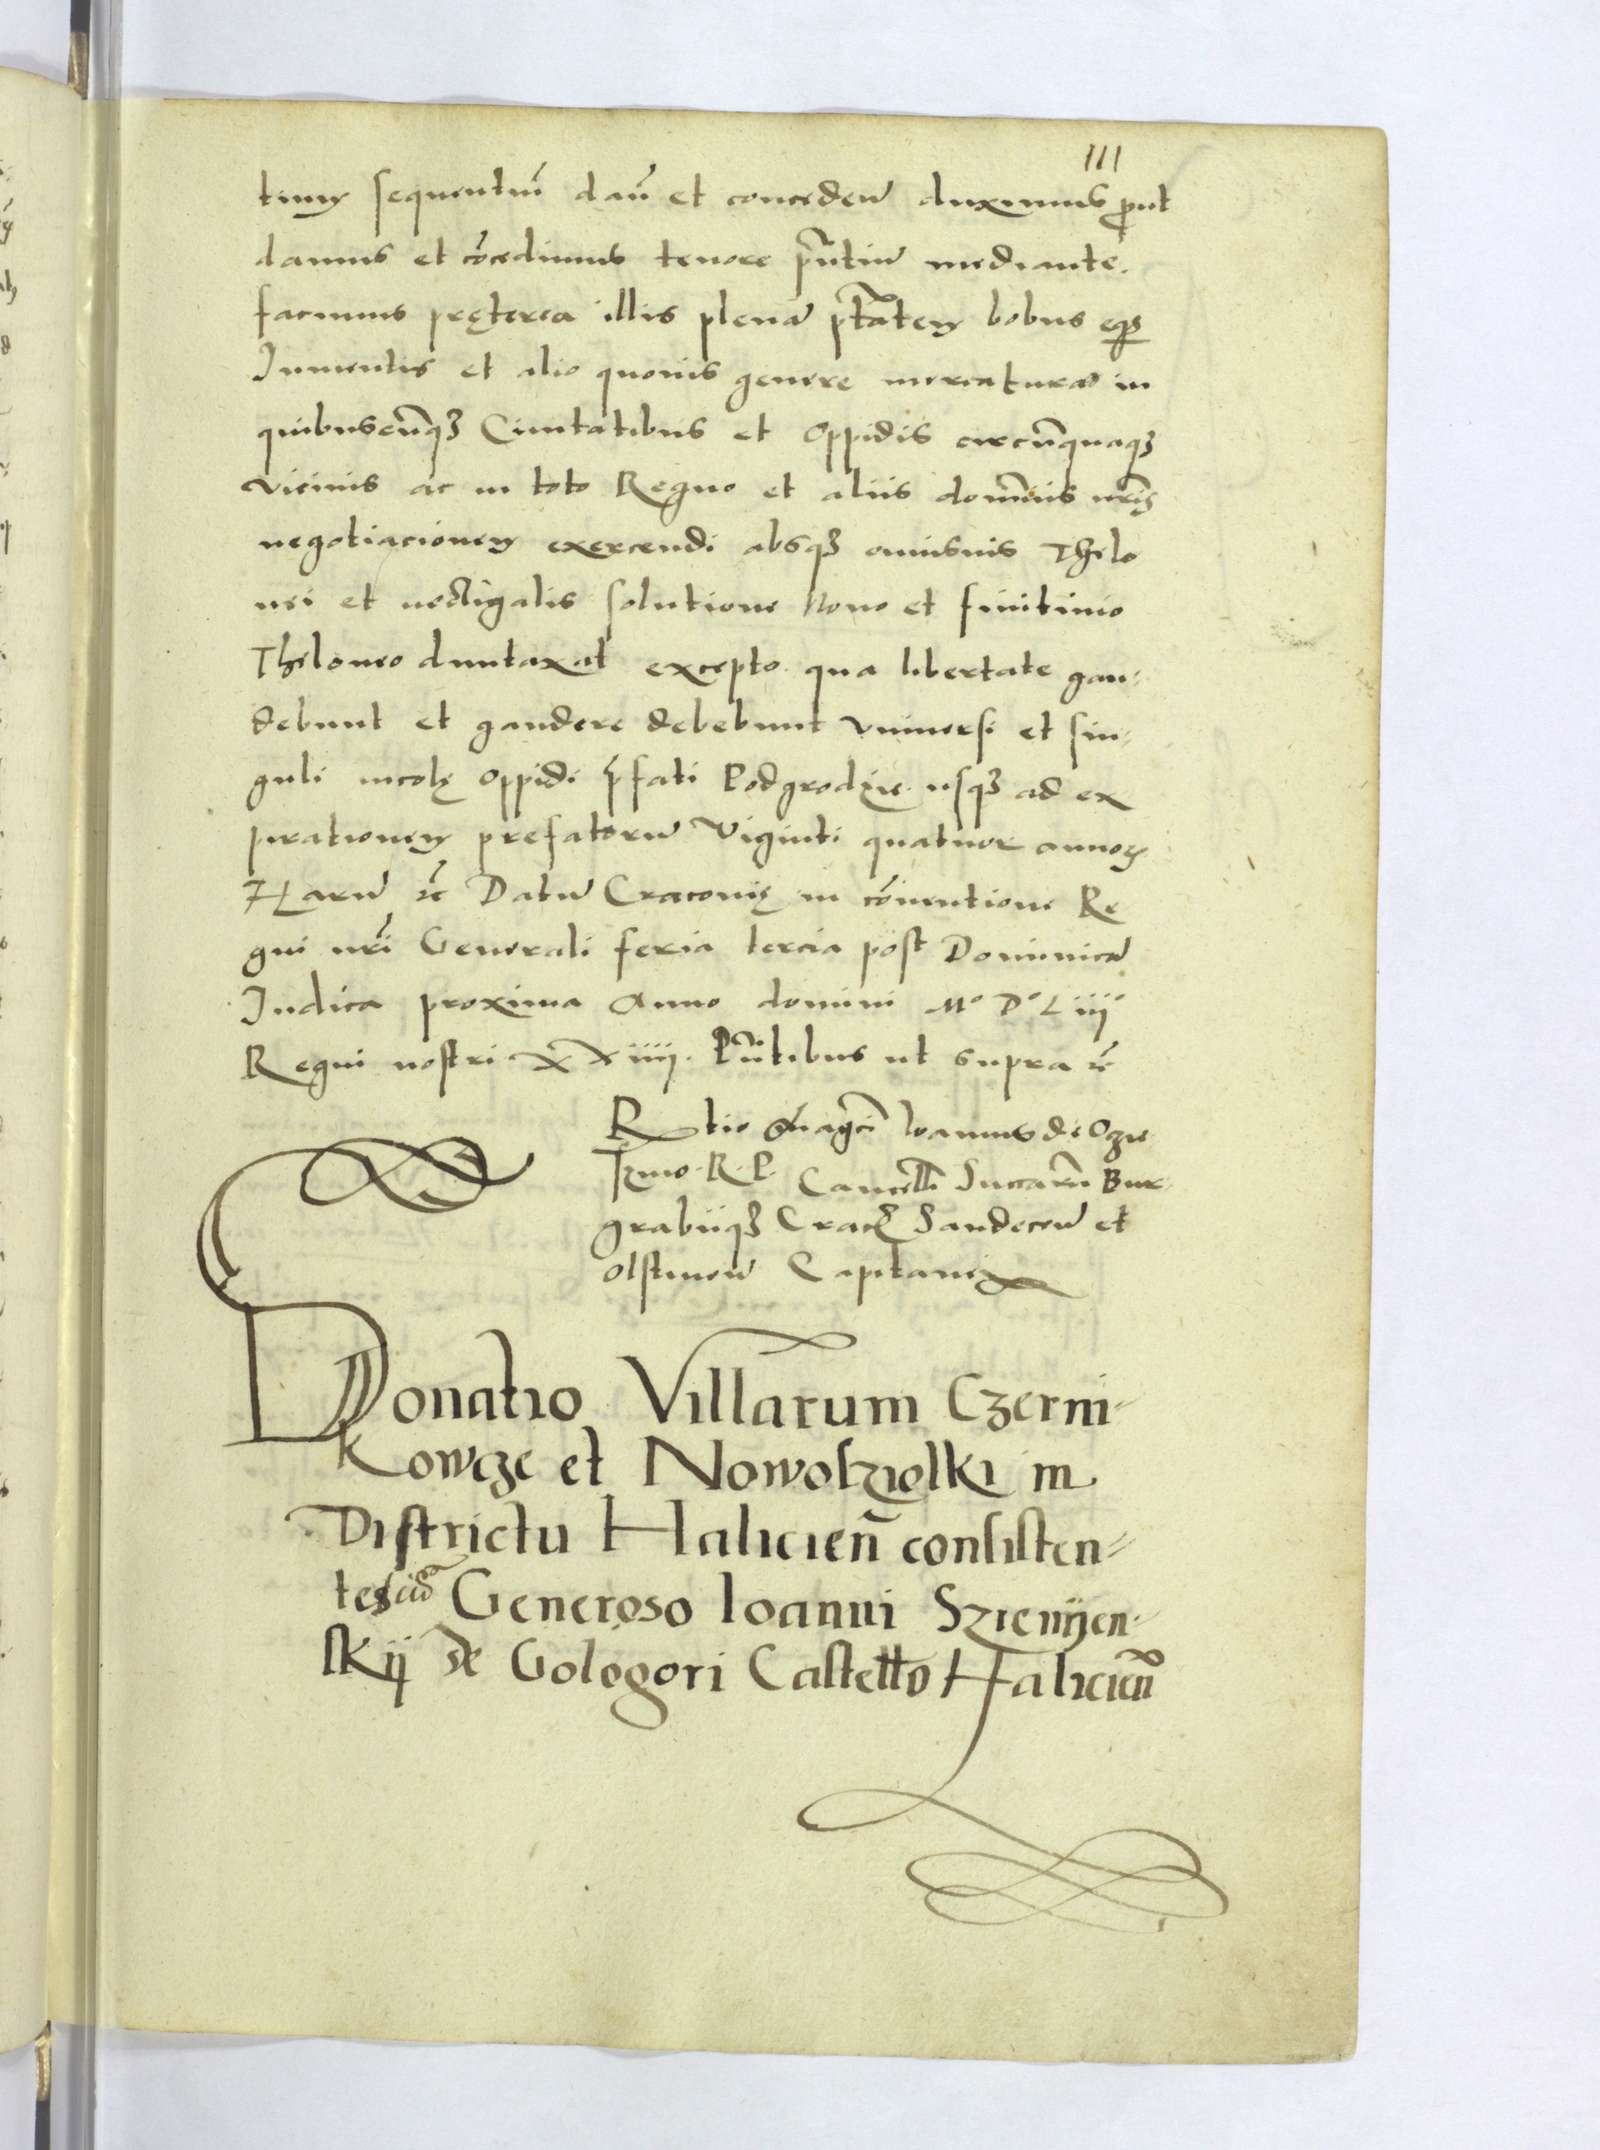 111
tium sequentiũ dañ et conceden̄ duximus prout
damus et cõcedimus tenore pñtium mediante.
facimus pręterea illis plenã ptãtem bobus equis
Iumentis et alio quouis genere mercaturae in
quibuscũqȝ Ciuitatibus et Oppidis circũquaqȝ
vicinis ac in toto Regno et aliis dominiis nr̃is
negotiacionem exercendi absqȝ omnisuis Thelo
nei et uectigalis solutione Nouo et finitimo
Theloneo duntaxat excepto. qua libertate gau-
debunt et gaudere debebunt vniuersi et sin-
guli incolę oppidi p̃fati Podgrodzie. usqȝ ad ex
pirationem prefatorũ Viginti quatuor annoꝝ
Harũ ec̃ Datũ Cracouię in cõuentione Re
gni nr̃i Generali feria tercia post Dominicã
Iudica proxima Anno domini Mº Dº Liiijº
Regni nostri XXiiij. Pñtibus ut supra ec̃
Rtio Magci Ioannis de Ocie
szino. R. P. Cancellr̃ Succam̃ Bur
grabiiqȝ Crac̃ Sandecen̄ et
olstinen̄ Capitanei
Donatio Villarum Czerni-
kowcze et Nowosziolki in
Districtu Halicien̄ consisten-
tes cũ Generoso Ioanni Szienyen-
skij de Gologori Castello Halicien̄